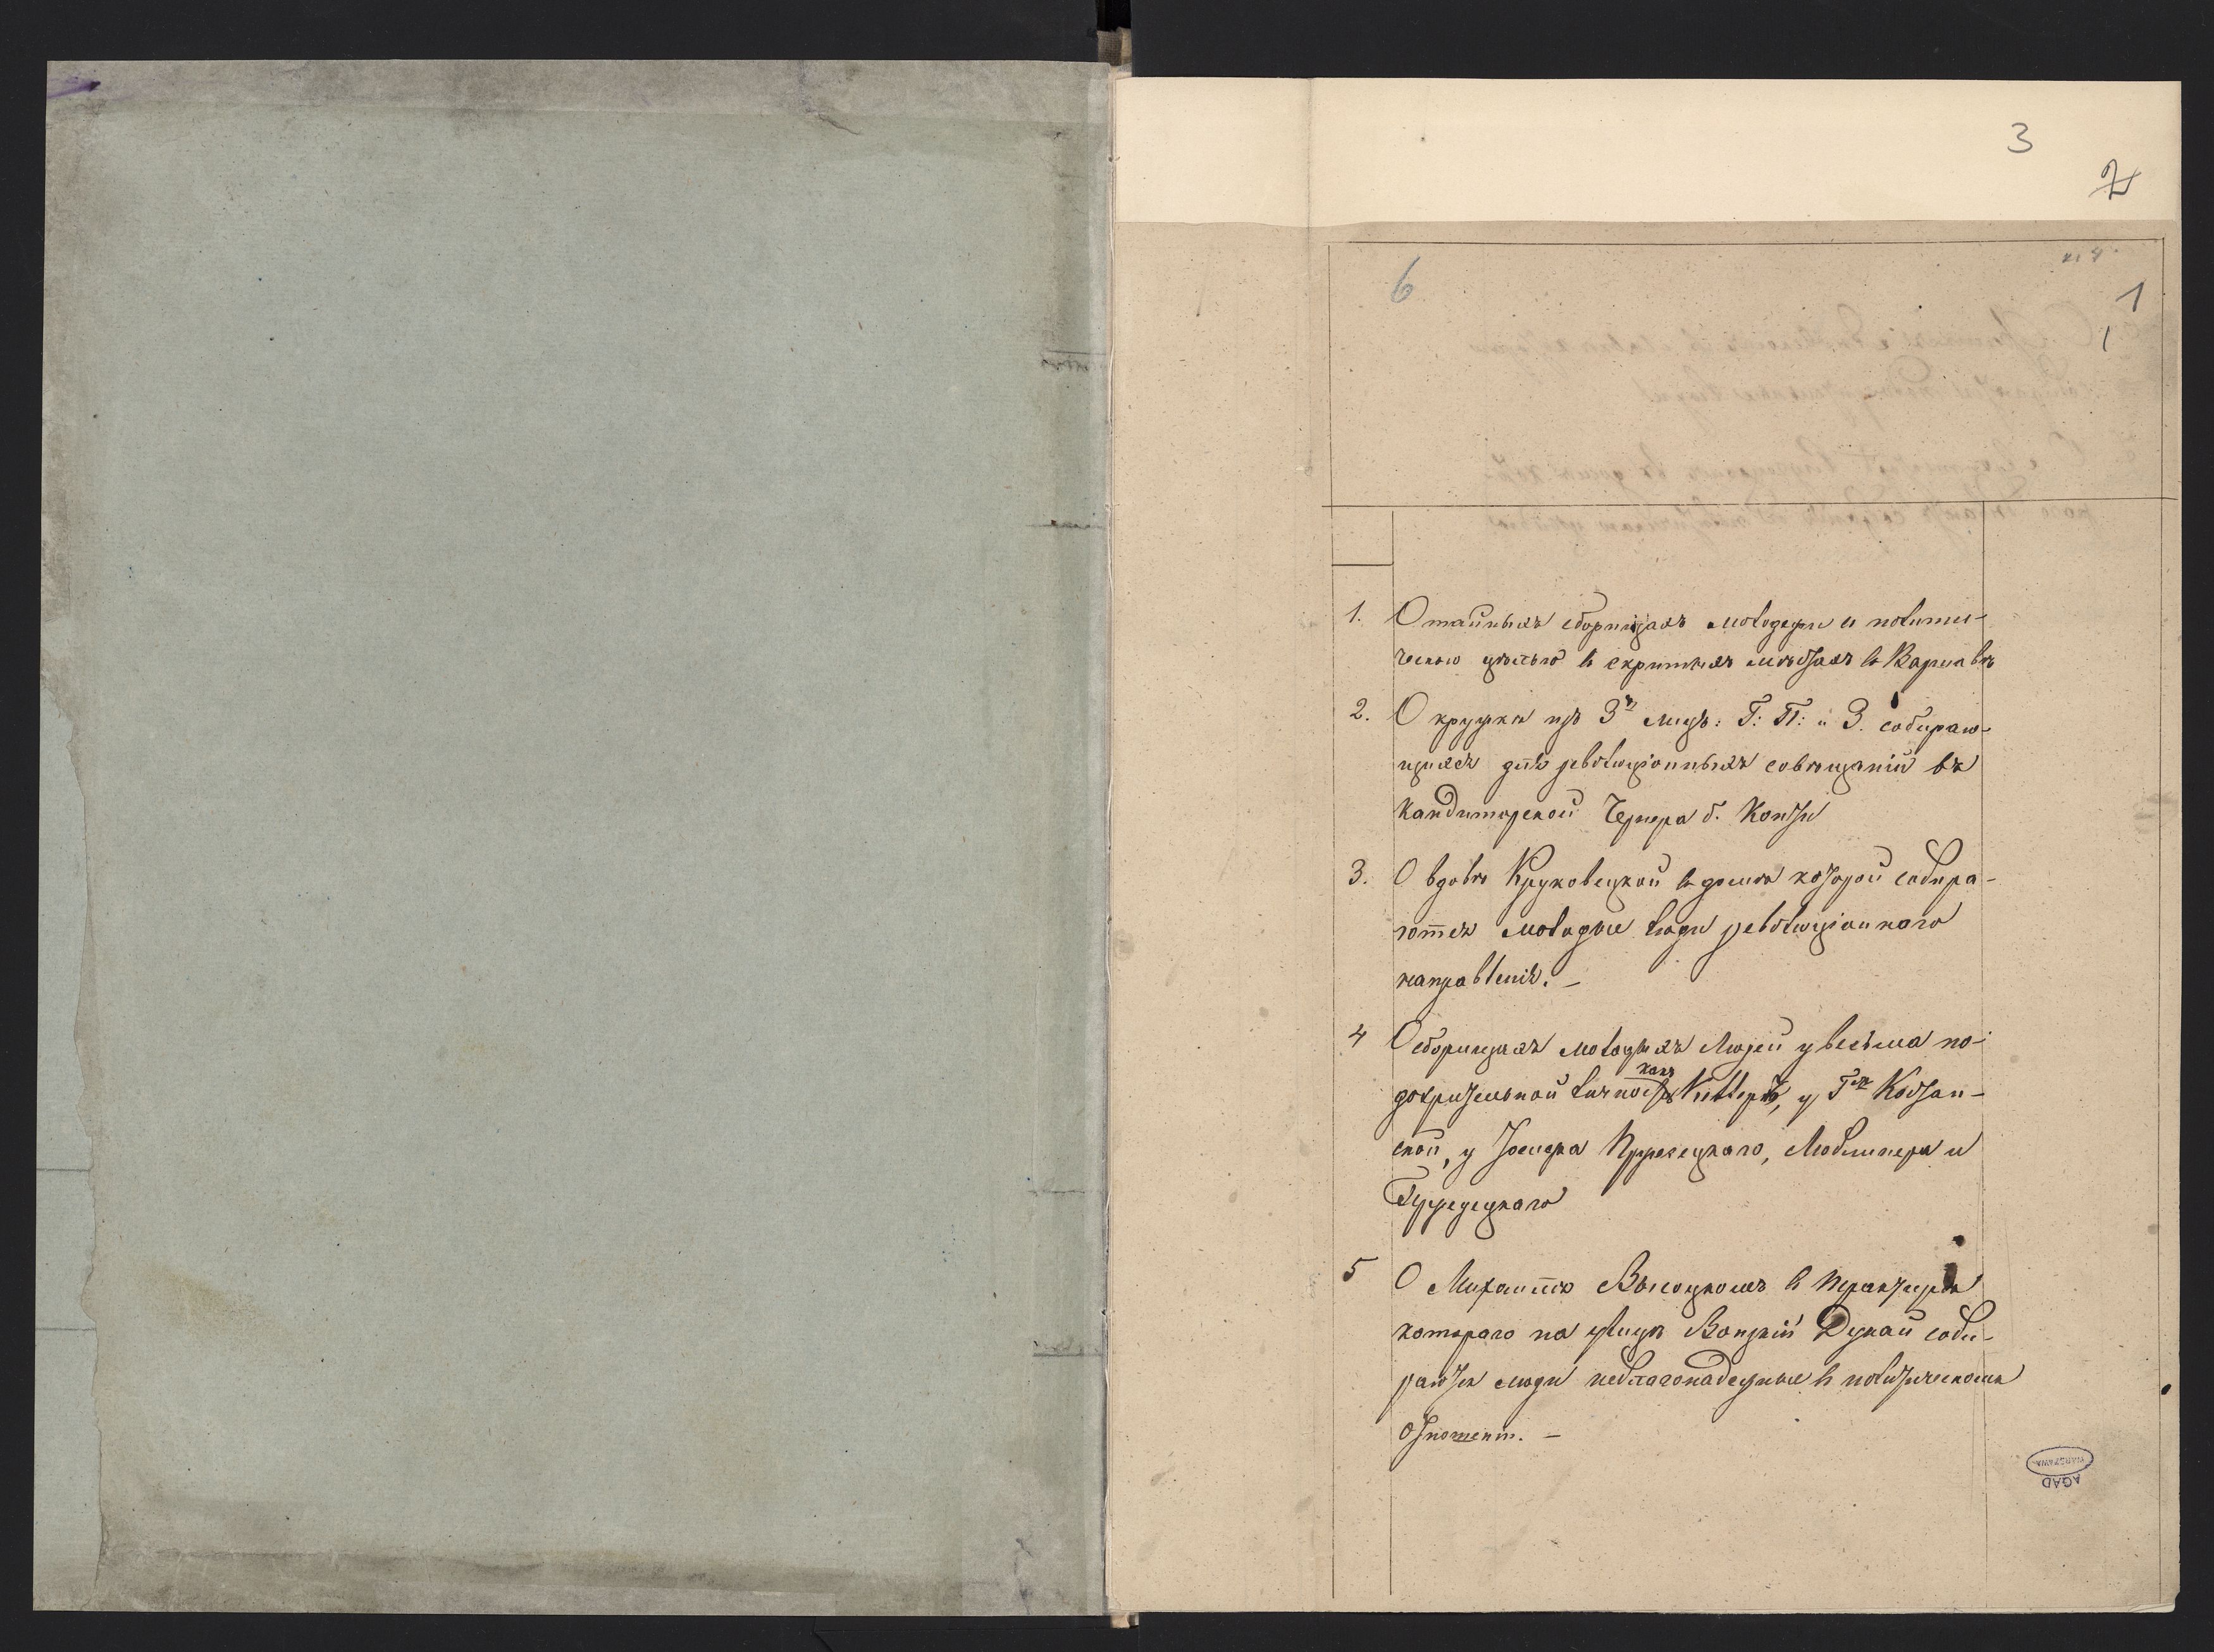 3
2
6
1
1
1. О тайныхъ сборищахъ молодежи съ полити-
ческою цѣлью въ скрытыхъ мѣстахъ въ Варшавѣ
2. О кружкѣ изъ 3хъ лицъ: Г: П: и З. собираю-
щихся для революціонныхъ совѣщаній въ
кандиторской б. Конти
3. О вдовѣ Круковецкой въ домѣ которой собира-
ются молодые люди революціоннаго
направленія. —
4 О сборищахъ молодыхъ людей у весьма по-
дозрительной личности какъ у Гжи
ской, у Любишера и

5 О Михаилѣ Высоцкомъ въ трактирѣ
котораго на улицѣ Вонзкій Дунай соби-
раются люди неблагонадежные въ политическомъ
отношеніи. —
AGAD
WARSZAWA